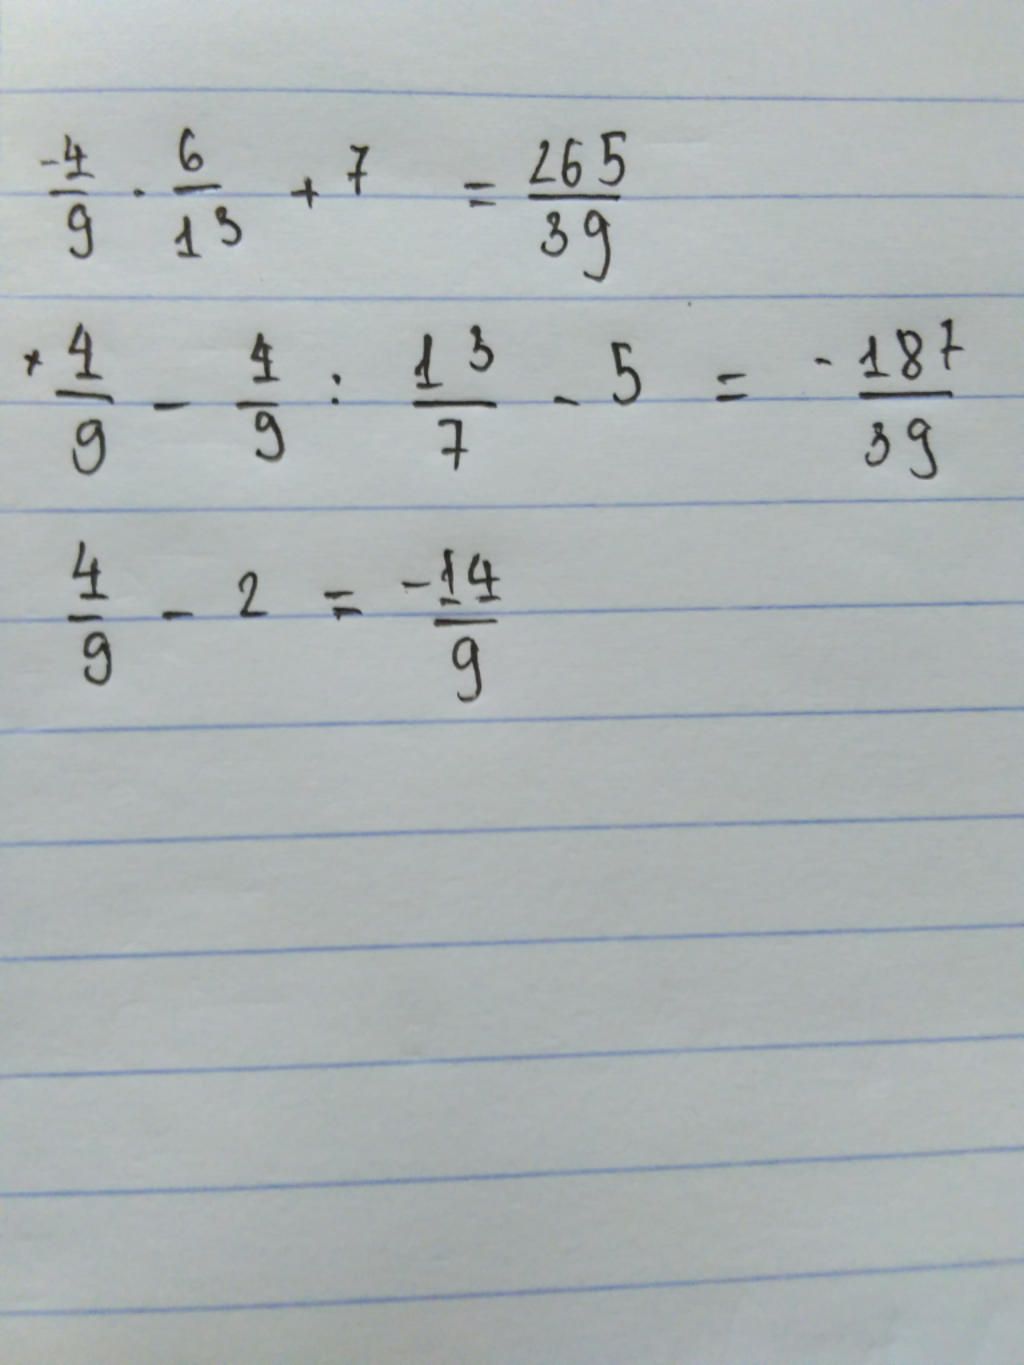 -4/9 . 6/13 + 7 = 265/39
* 4/9 - 4/9 : 13/7 - 5 = -187/39
4/9 - 2 = -14/9